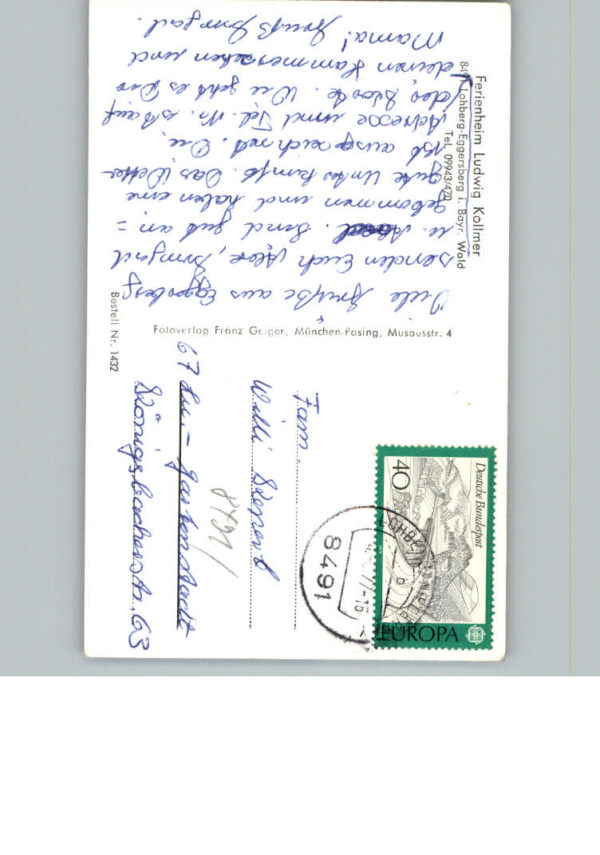 Ferienheim Ludwig Kollmer
8491 Lohberg-Eggersberg i. Bayr. Wald
Tel. 09943/470
Viele Grüße aus Eggersberg
senden Euch Alex, Irmgard
u. Sind gut an=
gekommen und haben eine
gute Unterkunft. Das Wetter
ist ausgezeichnet. Die
Adresse und Tel. Nr. ist auf
der Karte. Wie geht es Dir
deinen Kammersehen und
Mama! Gruß Irmgard.
Fotoverlag Franz Geiger, München-Pasing, Musausstr. 4
Bestell Nr. 1432
Fam.
Willi
67 Lu.- Gartenstadt
Königsbacherstr. 63
8491
Deutsche Bundespost
40
EUROPA
8491
77-16